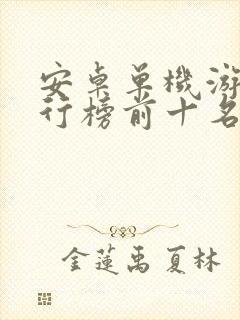 安桌单機游
行榜前十名
金蓮禹夏林